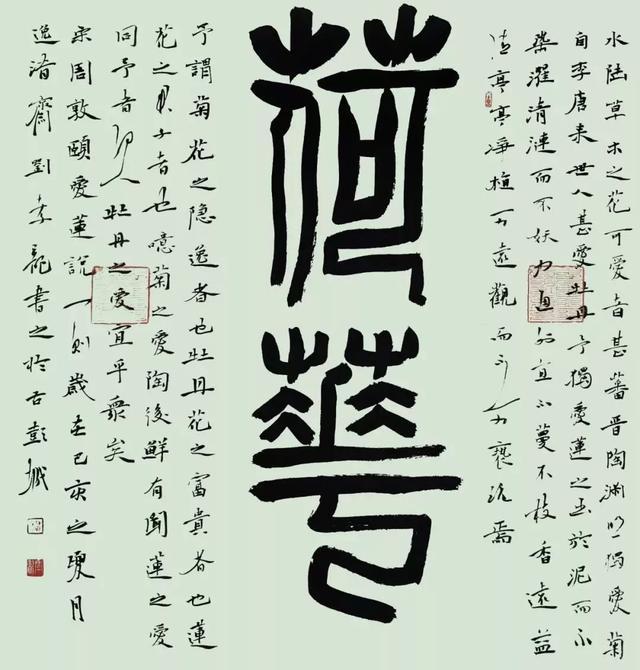 水陸草木之花可愛者甚蕃晋陶淵明獨愛菊
自李唐来世人甚愛牡丹予獨愛蓮之出於泥而不
染濯清漣而不妖中通外直不蔓不枝香遠益
清亭亭净植可遠觀而不可褻玩焉
荷華
予謂菊花之隐逸者也牡丹花之富貴者也蓮
花之君子者也噫菊之愛陶後鮮有聞蓮之愛
同予者何人牡丹之愛宜乎衆矣
宋周敦頤愛蓮說一則歲在己亥之月
逸清齋劉孝龍書之於古彭城